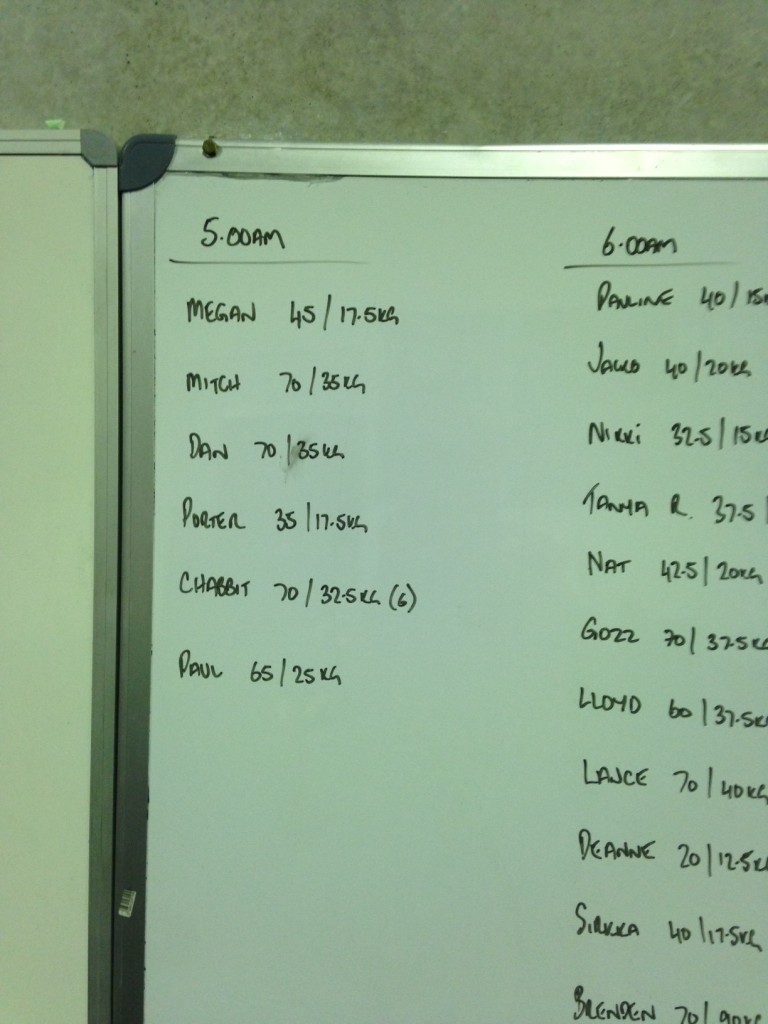 5.00AM
MEGAN 45/17.5KG
MITCH 70/35KG
DAN 70/35KG
PORTER 35/17.5KG
CHABBIT 70/32.5KG (6)
PAUL 65/25KG
6.00AM
PAULINE 40/15K
JACKO 40/20KG
NIKKI 32.5/15KG
TANYA R. 37.5/
NAT 42.5/20KG
GOZZ 70/37.5KG
LLOYD 60/37.5KG
LANCE 70/40KG
DEANNE 20/12.5KG
SIRKKA 40/17.5KG
BRENDEN 70/